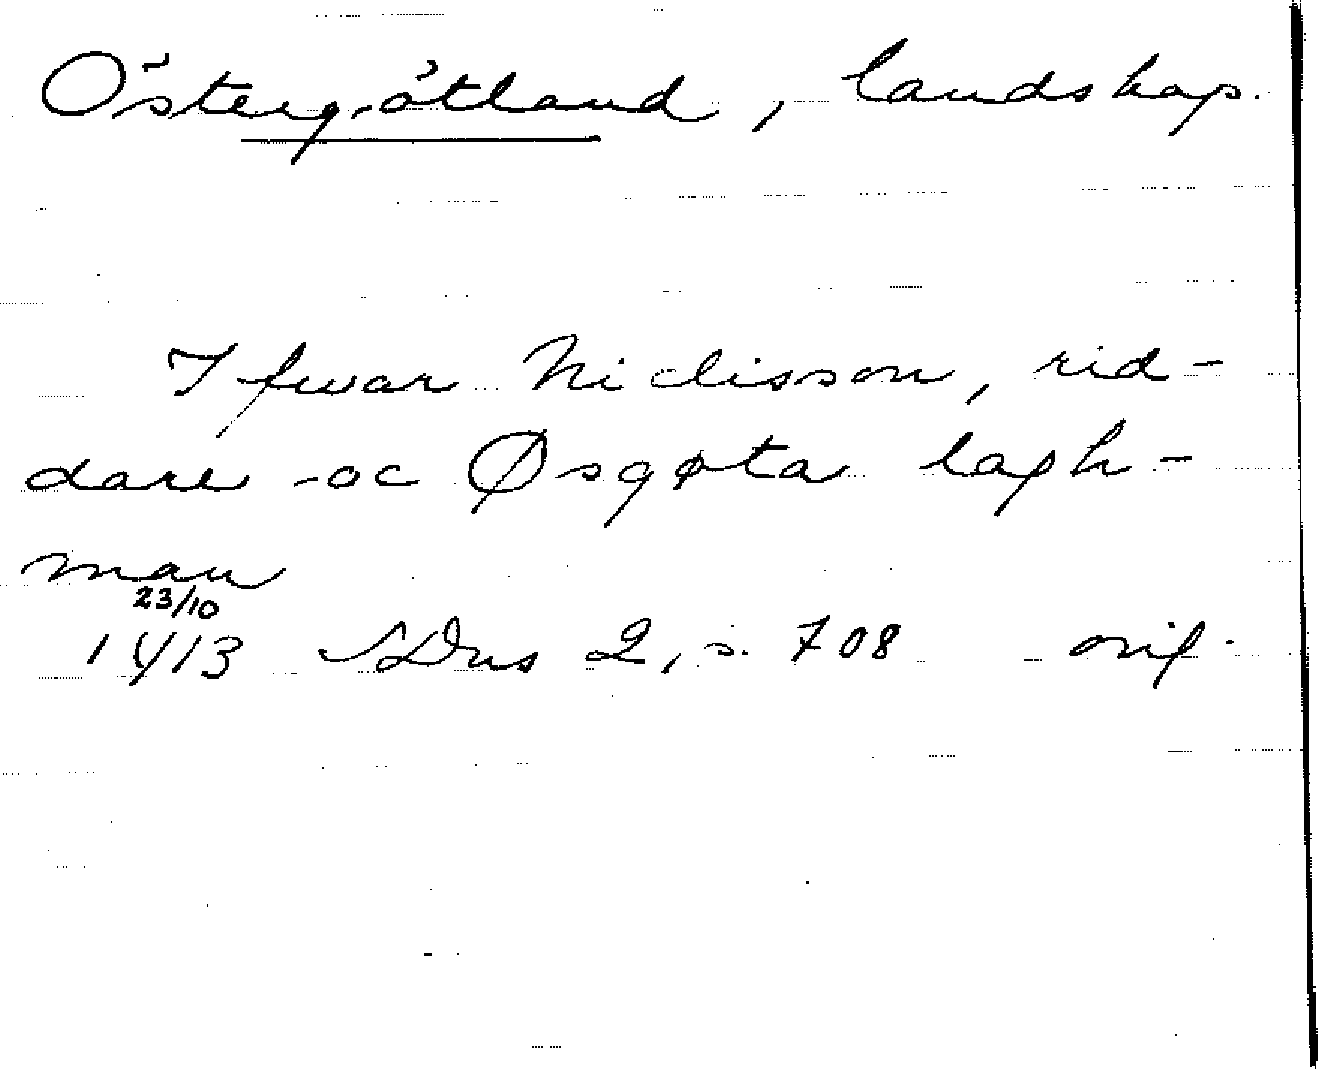 Östergötland, landskap.
Ifwar Niclisson, rid-
dare oc Øsgøta lagh-
man
23/10
1413 SDns 2, s. 708 orig.